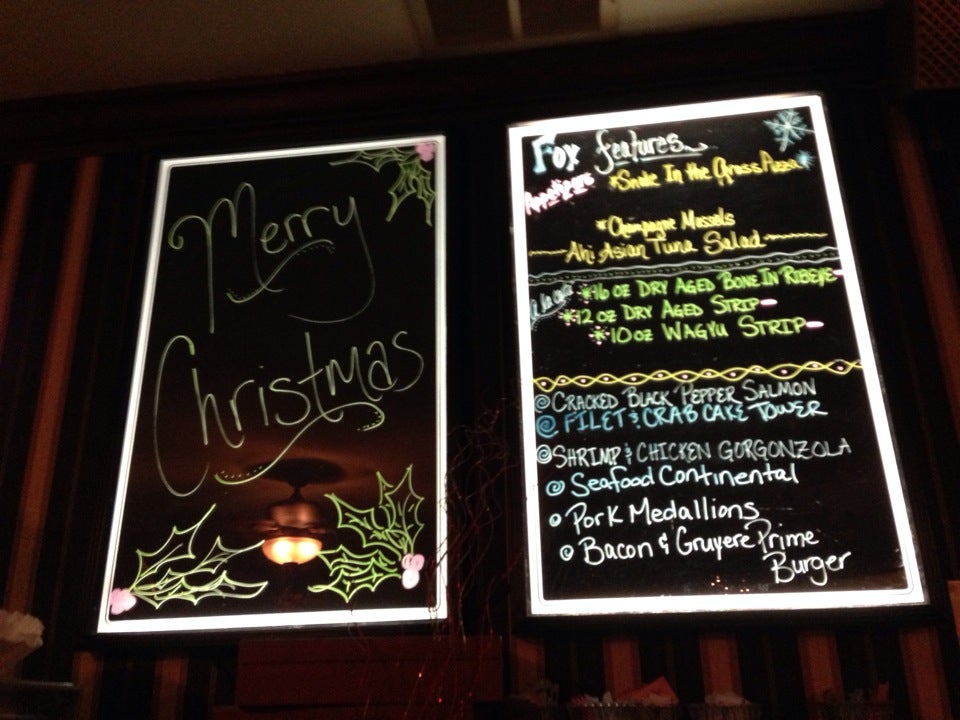 Merry
Christmas
Fox features
Appetizers
*Snake In the Grass Pizza
*Champagne Mussels
Ahi Asian Tuna Salad
*16 oz DRY AGED BONE IN RIBEYE
*12 oz DRY AGED STRIP
*10 oz WAGYU STRIP
@ CRACKED BLACK PEPPER SALMON
@ FILET & CRAB CAKE TOWER
@ SHRIMP & CHICKEN GORGONZOLA
@ Seafood Continental
@ Pork Medallions
@ Bacon & Gruyere Prime
Burger